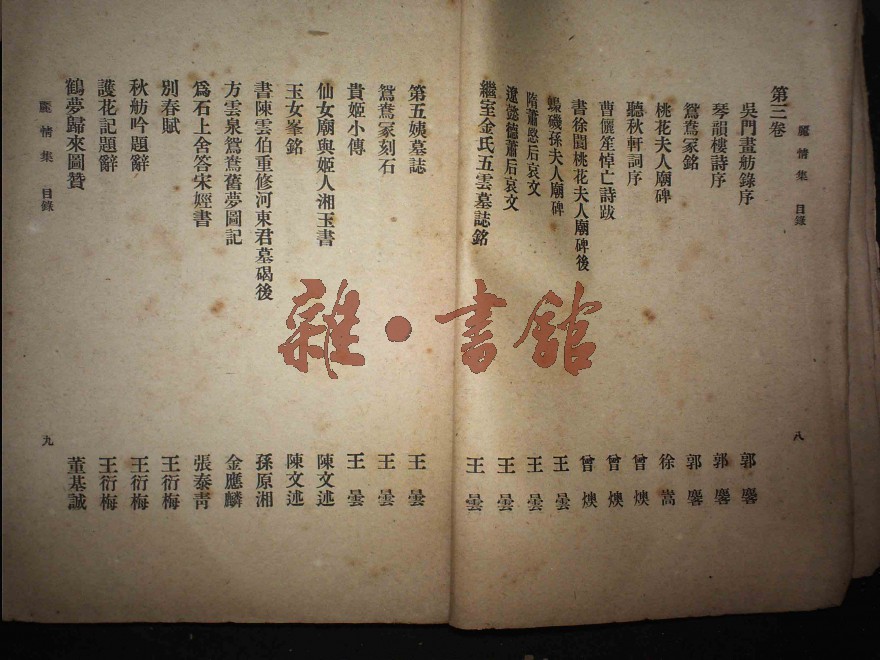 麗情集 目錄 八
第三卷
吳門畫舫錄序 郭麐
琴韻樓詩序 郭麐
鴛鴦冢銘 郭麐
桃花夫人廟碑 徐嵩
聽秋軒詞序 曾燠
曹儷笙悼亡詩跋 曾燠
書徐閬桃花夫人廟碑後 曾燠
蟂磯孫夫人廟碑 王曇
隋蕭愍后哀文 王曇
遼懿德蕭后哀文 王曇
繼室金氏五雲墓誌銘 王曇
第五姨墓誌 王曇
鴛鴦冢刻石 王曇
貴姬小傳 王曇
仙女廟與姬人湘玉書 陳文述
玉女峯銘 陳文述
書陳雲伯重修河東君墓碣後 孫原湘
方雲泉鴛鴦舊夢圖記 金應麟
爲石上舍答宋娙書 張泰靑
別春賦 王衍梅
秋舫吟題辭 王衍梅
護花記題辭 王衍梅
鶴夢歸來圖贊 董基誠
麗情集 目錄 九
雜·書館